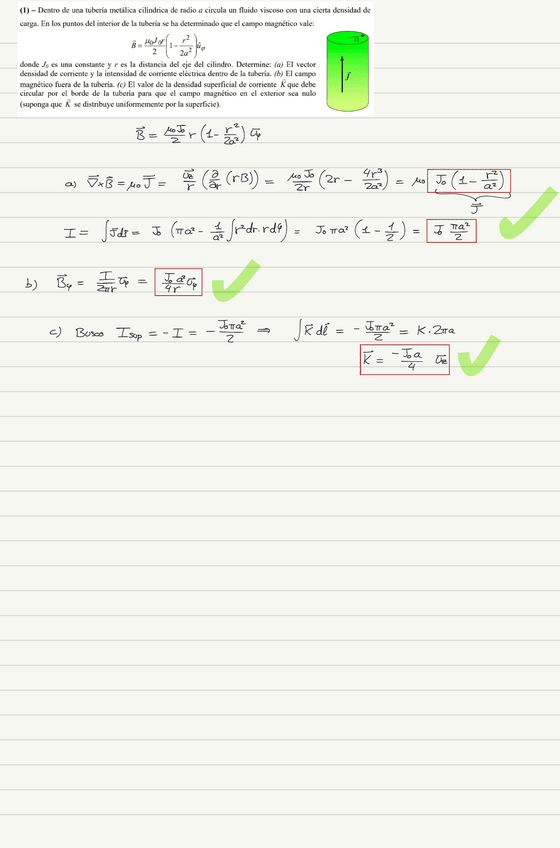 (1) – Dentro de una tubería metálica cilíndrica de radio a circula un fluido viscoso con una cierta densidad de
carga. En los puntos del interior de la tubería se ha determinado que el campo magnético vale:
B⃗ = μ₀J₀r/2 (1 − r²/2a²) û_φ
donde J₀ es una constante y r es la distancia del eje del cilindro. Determine: (a) El vector
densidad de corriente y la intensidad de corriente eléctrica dentro de la tubería. (b) El campo
magnético fuera de la tubería. (c) El valor de la densidad superficial de corriente K⃗ que debe
circular por el borde de la tubería para que el campo magnético en el exterior sea nulo
(suponga que K⃗ se distribuye uniformemente por la superficie).
a
J⃗
B⃗ = μ₀J₀/2 r (1 − r²/2a²) u⃗φ
a) ∇⃗×B⃗ = μ₀ J⃗ = u⃗z/r (∂/∂r (rB)) = μ₀ J₀/2r (2r − 4r³/2a²) = μ₀ J₀ (1 − r²/a²)
J⃗
I = ∫ J⃗ds⃗ = J₀ (πa² − 1/a² ∫ r² dr. r dφ) = J₀ πa² (1 − 1/2) = J₀ πa²/2
b) B⃗φ = I/2πr u⃗φ = J₀ a²/4r u⃗φ
c) Busco Isup = − I = − J₀πa²/2 ⇒ ∫ K⃗ dl⃗ = − J₀πa²/2 = K · 2πa
K⃗ = − J₀ a/4 u⃗z